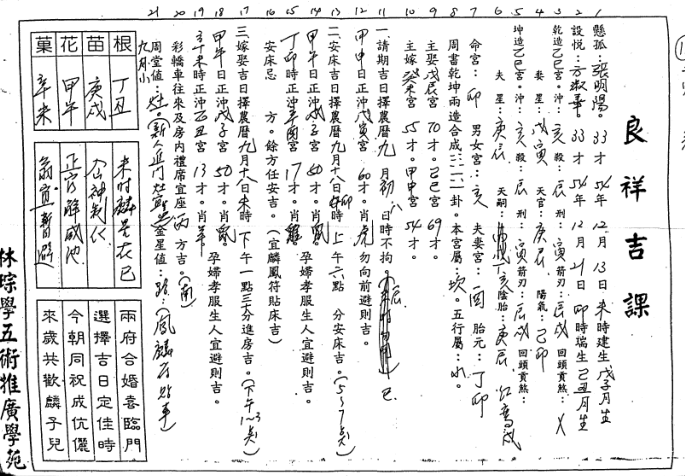 良祥吉課
1 懸弧：張明陽。33才 54年12月13日未時建生戊子月生
2 設悅：方淑華。33才 54年12月21日卯時瑞生己丑月生
3 乾造乙巳宮。沖：亥 殺：辰 刑：寅 箭刃：辰戌 回頭貢煞：
4 妻星：戊寅 天官：庚辰 陽氣：己卯
5 坤造乙巳宮。沖：亥 殺：辰 刑：寅 箭刃：辰戌 回頭貢煞：
6 夫星：庚辰 天嗣： 陰胎：庚辰 紅鸞
7 命宮：卯 男女宮：亥 夫妻宮：酉 胎元：丁卯
8 周書乾坤兩造合成：三二二卦。本宮屬：坎。五行屬：水。
9 主娶戊辰宮 70才。己巳宮 69才。
10 主嫁癸未宮 55才。甲申宮 54才。
11 一、請期吉日擇農曆九月初八日時不拘。
12 甲申日正沖戊寅宮 60才。肖虎 勿向前避則吉。
13 二、安床吉日擇農曆九月十八日卯時 上午六點 分安床吉。(5~7点)
14 甲午日正沖戊子宮 50才。肖鼠 孕婦孝服生人宜避則吉。
15 丁卯時正沖辛酉宮 17才。肖雞
16 安床忌 方。餘方任安吉。(宜麟鳳符貼床吉)
17 三、嫁娶吉日擇農曆九月十八日未時 下午一點三十分進房吉。(下午1~3点)
18 甲午日正沖戊子宮 50才。肖鼠 孕婦孝服生人宜避則吉。
19 辛未時正沖乙丑宮 13才。肖羊
20 彩轎車往來及房內禮席宜座丙方吉。(南)
21 周堂值：灶。 金星值：路。(鳳麟符貼車)
九月小
根 丁丑
苗 庚戌
花 甲午
菓 辛未
未時麟星在巳
兩府合婚喜臨門
選擇吉日定佳時
今朝同祝成伉儷
來歲共歡麟子兒
林琮學五術推廣學苑